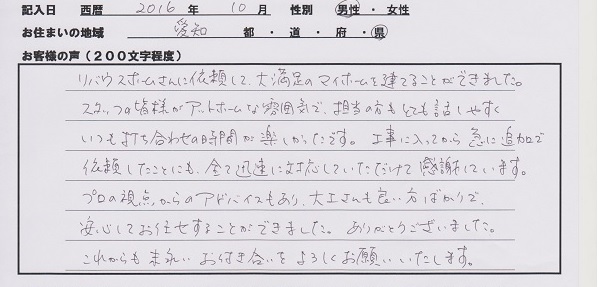 記入日 西暦 2016 年 10 月 性別 男性 ・ 女性
お住まいの地域 愛知 都 ・ 道 ・ 府 ・ 県
お客様の声（２００文字程度）
リバウスホームさんに依頼して、大満足のマイホームを建てることができました。
スタッフの皆様がアットホームな雰囲気で、担当の方もとても話しやすく
いつも打ち合わせの時間が楽しかったです。工事に入ってから急に追加で
依頼したことにも、全て迅速に対応していただけて感謝しています。
プロの視点からのアドバイスもあり、大工さんも良い方ばかりで、
安心してお任せすることができました。ありがとうございました。
これからも末永いお付き合いをよろしくお願いいたします。